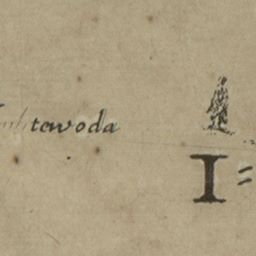 tewoda
I =